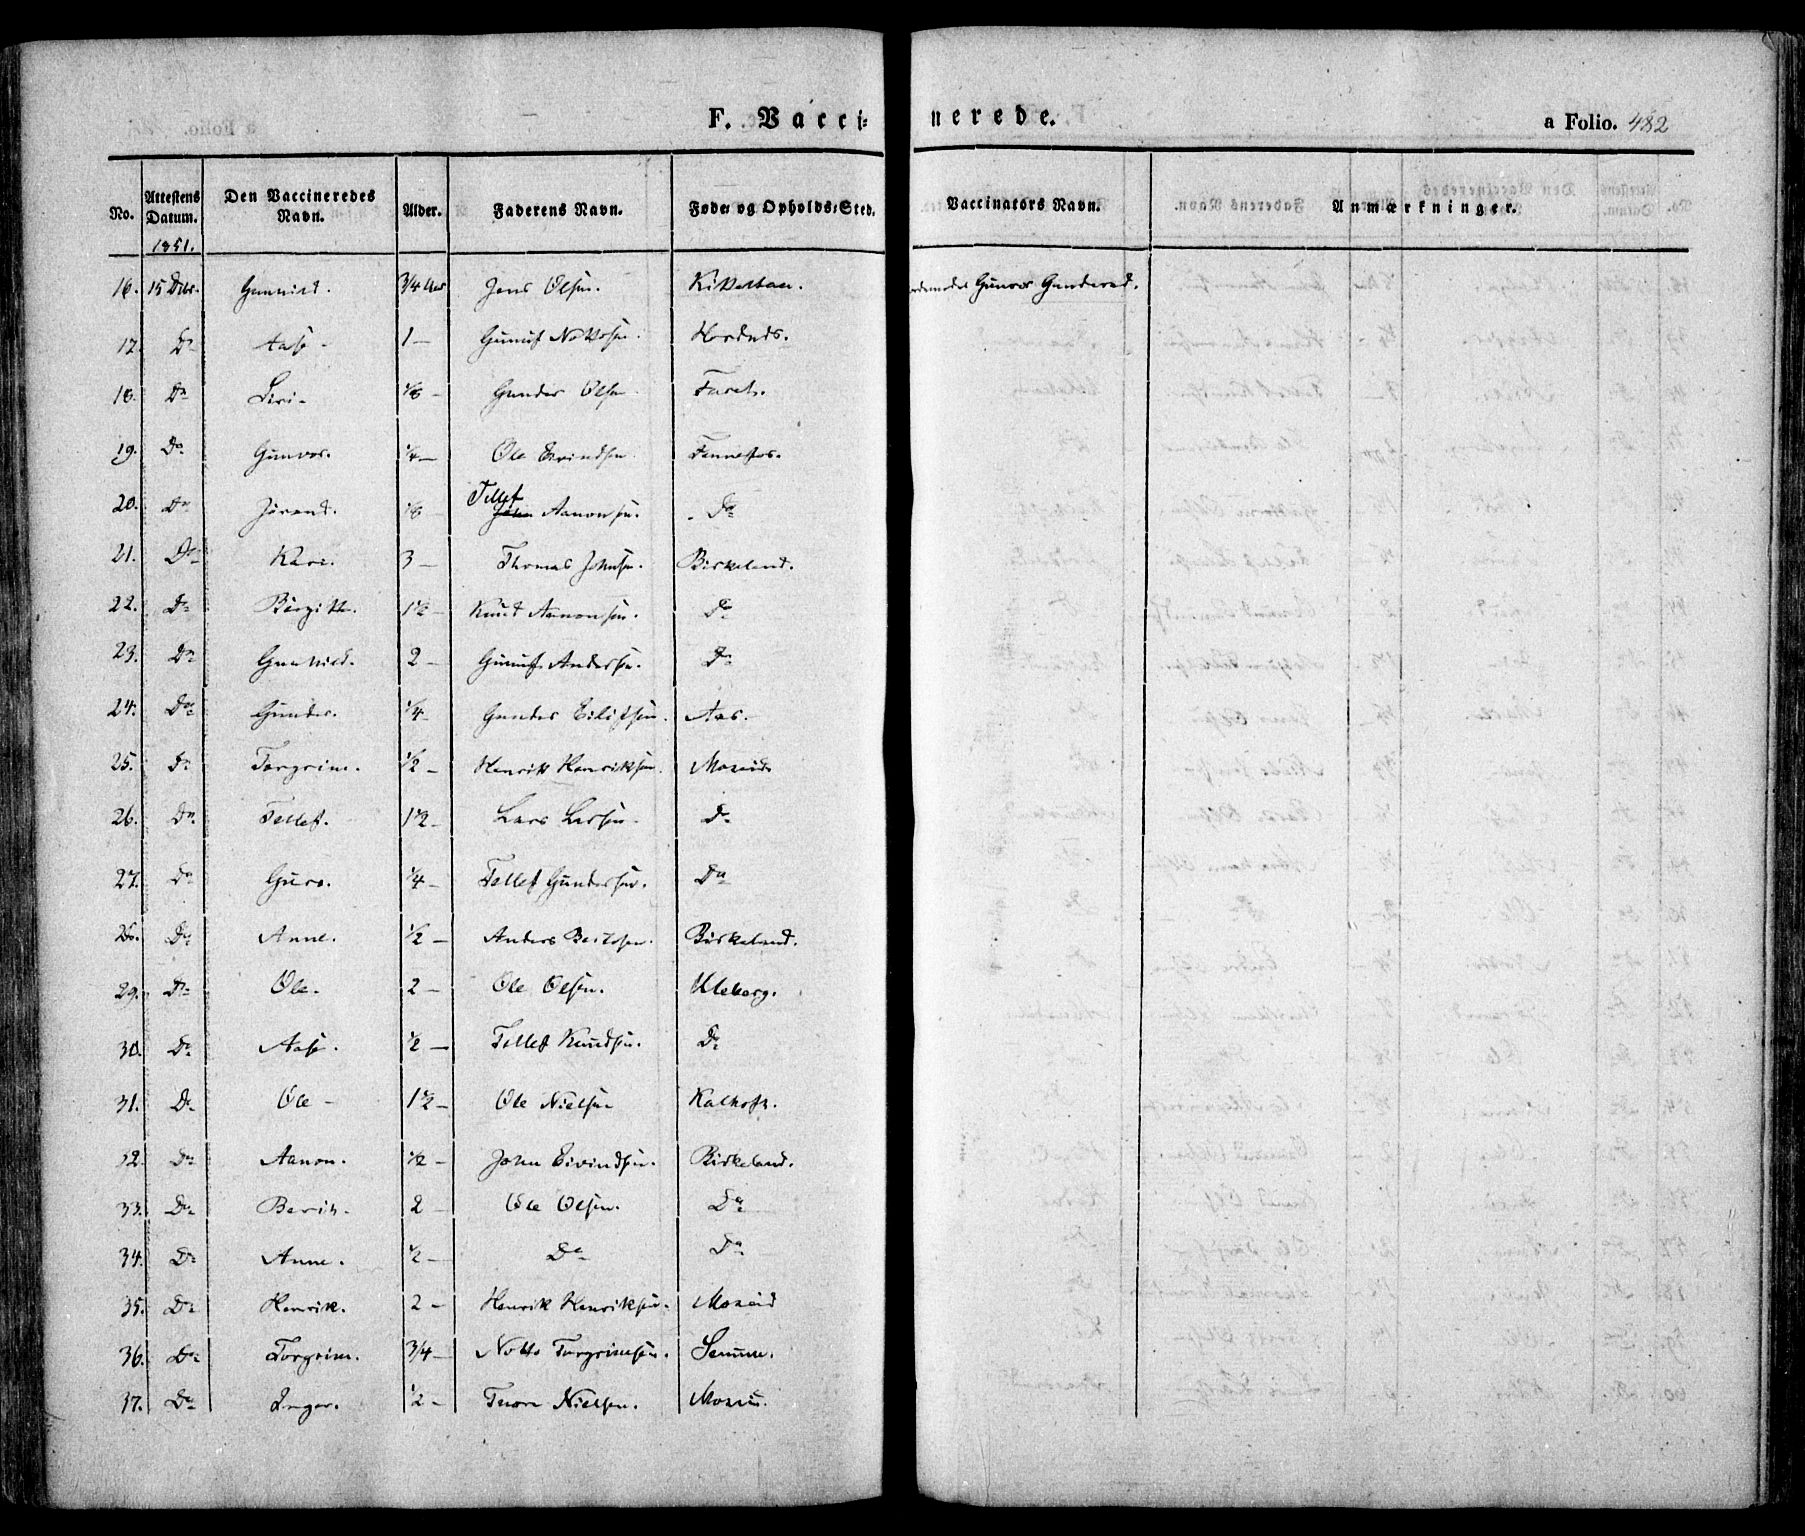 F. Vacci- nerede. a Folio. 482
No. Attestens Datum. Den Vaccineredes Navn. Alder. Faderens Navn. Føde- og Opholds-Sted. Vaccinators Navn. Anmærkninger.
1851.
16. 15 Dbr. Gunnild. 3/4 Aar Jens Olsen. Gunvor
17. Do Aase. 1 — Gunuf Nottosen.
18. Do Siri. 1/8 — Gunder Olsen
19. Do Gunvor. 1/4 — Ole Eivindsen
20. Do Jorand. 1/8 — Tellef
John Aanonsen. Do
21. Do Kari. 3 — Thomas Johnsen. Birkeland.
22. Do Birgitte. 1 1/2 — Knud Aanonsen. Do
23. Do Gunnild. 2 — Gunuf Andersen. Do
24. Do Gunder. 1/4 — Gunder Eilifsen. Aas.
25. Do Torgrim. 1/2 — Henrik Henriksen. Moseid
26. Do Tellef. 1 1/2 — Lars Larsen. Do
27. Do Guro. 1/4 — Tellef Gundersen. Do
28. Do Anne. 1/2 — Anders Birkeland.
29. Do Ole. 2 — Ole Olsen. Uleberg.
30. Do Aase. 1/2 — Tellef Knudsen. Do
31. Do Ole — 1 1/2 — Ole Nielsen
32. Do Aanon. 1/2 — John Eivindsen. Birkeland.
33. Do Berith. 2 — Ole Olsen. Do
34. Do Anne. 1/2 — Do Do
35. Do Henrik. 2 — Henrik Henriksen. Moseid
36. Do Torgrim. 3/4 — Notto Torgrimsen. Senum.
37. Do Inger. 1/2 — Thore Nielsen.